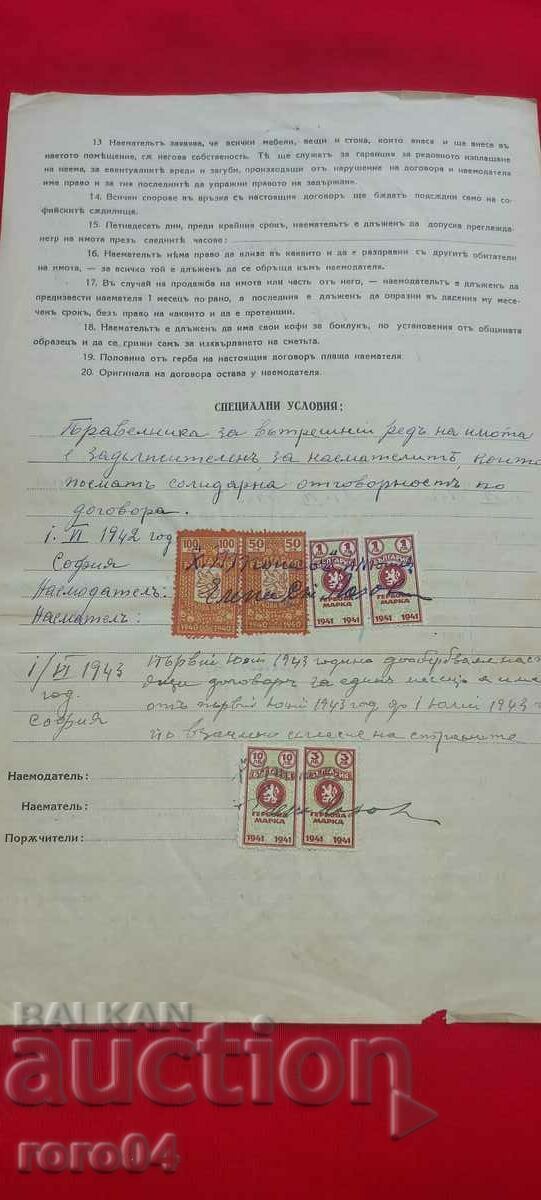 13 Наемательтъ заявява, че всички мебели, вещи и стока, които внася и ще внесе въ
наетото помѣщение, сѫ негова собственость. Тѣ ще служатъ за гаранция за редовното изплащане
на наема, за евентуалнитѣ вреди и загуби, произходящи отъ нарушение на договора и наемодателя
има право и за тия последнитѣ да упражни правото на задържане.
14. Всички спорове въ връзка съ настоящия договоръ ще бѫдатъ подсѫдни само на со-
фийскитѣ сѫдилища.
15. Петнадесеть дни, преди крайния срокъ, наемательтъ е длъженъ да допуска преглежда-
нетр на имота презъ следнитѣ часове:
16. Наемательтъ нѣма право да влиза въ каквито и да е разправии съ другитѣ обитатели
на имота, — за всичко той е длъженъ да се обръща къмъ наемодателя.
17. Въ случай на продажба на имота или часть от него, — наемодательтъ е длъженъ да
предизвести наемателя 1 месецъ по рано, а последния е длъженъ да опразни въ дадения му месе-
ченъ срокъ, безъ право на каквито и да е претенции.
18. Наемательтъ е длъженъ да има свои кофи за боклукъ, по установения отъ общината
образецъ и да се грижи самъ за изхвърлянето на сметьта.
19. Половина отъ герба на настоящия договоръ плаща наемателя.
20. Оригинала на договора остава у наемодателя.
СПЕЦИАЛНИ УСЛОВИЯ:
Правилника за вѫтрешния редъ на имота
е задължителенъ за наемателитѣ, които
поематъ солидарна отговорность по
договора.
1. VI 1942 год
София
Наемодатель:
Наематель:
100 100 50 50
1 БЪЛГАРИЯ 1 1 БЪЛГАРИЯ 1
ГЕРБОВА МАРКА ГЕРБОВА МАРКА
1941 1941 1941 1941
1/VI 1943 Първий Юний 1943 година
год. договоръ за единъ месецъ
София отъ първий Юний 1943 год до 1 Юлий 1943 г
по взаимно съгласие на странитѣ
Наемодатель:
Наематель:
Порѫчители:
10 лв 10 лв 3 лв 3 лв
БЪЛГАРИЯ БЪЛГАРИЯ
ГЕРБОВА МАРКА ГЕРБОВА МАРКА
1941 1941 1941 1941
BALKAN
auction
roro04